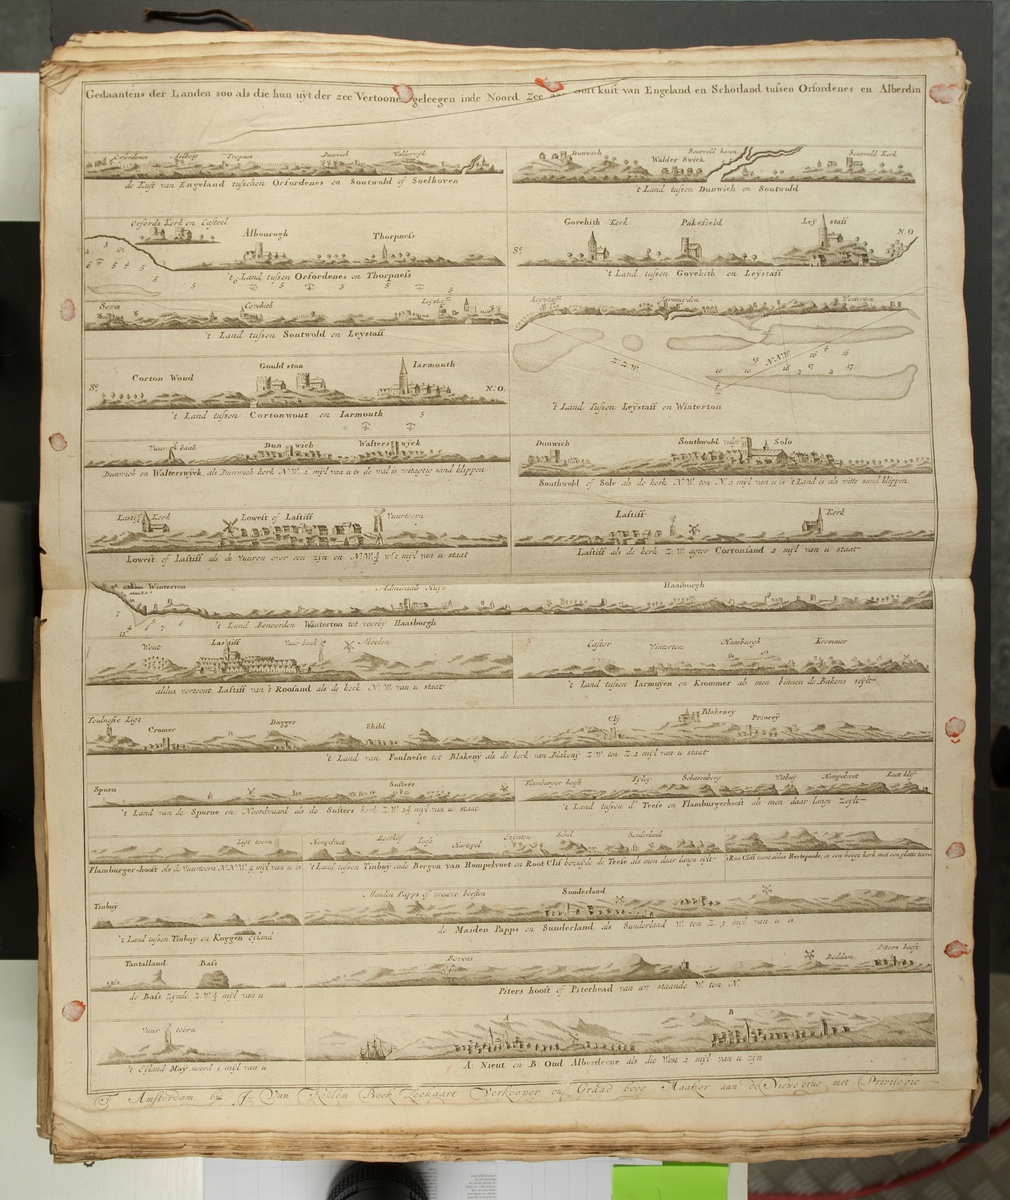 Gedaantens der Landen soo als die hun uyt der zee Vertoone geleegen inde Noord Zee aan oost kuit van Engeland en Schotland tussen Orfordenes en Alberdin
Orfordenes Aelborg Trepnes Dunwich Walderwyk
de Kust van Engeland tusschen Orfordenes en Soutwold of Soelhoven
Dunwich Walder Swick Soutwold haven Soutwold Kerk
't Land tussen Dunwich en Soutwold
Orfords Kerk en Casteel
Albourogh Thorpness
't Land tussen Orfordenes en Thorpness
Govehith Kerk Pakefield Leystaff
N.O
't Land tussen Govehith en Leystaff
Sowo Covehith Leystaff
't Land tussen Soutwold en Leystaff
Leystaff Jarmurden Winterton
Z.Z.W. N.N.W.
't Land Tussen Leystaff en Winterton
Corton Woud Gould ston Iarmouth
N.O.
't Land tussen Cortonwout en Iarmouth
Vuur baak Dunwich Walterswyck
Dunwich en Walterswyck, als Dunwich kerk N.W. 2 myl van u is de wal is witagtig sand klippen
Dunwich Southwold Solo
Southwold of Sole als de kerk N.W. ten N. 2 myl van u is 't Land is als witte sand klippen
Lastiff Kerk Lowest of Lastiff Vuurtoorn
Lowest of Lastiff als de Vuuren over een zyn en N.W. 1 myl van u staat
Lastiff Kerk
Lastiff als de kerk Z.W. agter Cortonland 2 myl van u staat
Winterton Admiraals Huys Haasburgh
't Land Benoorden Winterton tot voorby Haasborgh
Wout Lastiff Vuur baak Moolen
aldus vertoont Lastiff van 't Roosand als de kerk N.W. van u staat
Castor Winterton Hamburgh Krommer
't Land tussen Iarmuyen en Krommer als men binnen de Bakens seylt
Foulnesse Ligt Cromer Dagger Shild Cly Blakeney Priorey
't Land van Foulnesse tot Blakeny als de kerk van Blakeny Z.W. ten Z 2 myl van u staat
Spurn Susters
't Land van de Spurne en Noordwaard als de Susters kerk Z.W. 2½ myl van u staat
Flamburger hooft Fyley Scharenberg Witbuy Hompelvoet Root klif
't Land tussen d' Teese en Flamburgerhooft als men daar langs Zeylt
Ligt toorn
Flamburger-hooft als de Vuurtoorn N.N.W. 4 myl van u is
Hompelvoet Rootklif teese Hartepol Schel Sonderland
't Land tussen Tinbuy ende Bergen van Hompelvoet en Root Clif bezuyde de Teese als men daar langs zylt
't Roo Cliff toont aldus Hertepoole, is een hooge kerk met een platte toorn
Tinbuy
't Land tussen Tinbuy en Koggen Eyland
Maiden Papps of vrouwe borsten Sunderland
de Maiden Papps en Sunderland als Sunderland W. ten Z. 3 myl van u is
Tantalland Bass
de Bass zynde Z.W. ½ myl van u
Bovens Boddam Piters hooft
Piters hooft of Piterhead van uw staande W. ten N.
Vuur toorn
't Eyland May noord 1 myl van u
A B
A: Nieut en B: Oud Alberdeene als die West 2 myl van u zyn
T' Amsterdam by J. Van Keulen Boek Zeekaart Verkooper en Graad boog Maaker aan de Nieuwe brug met Privilegie